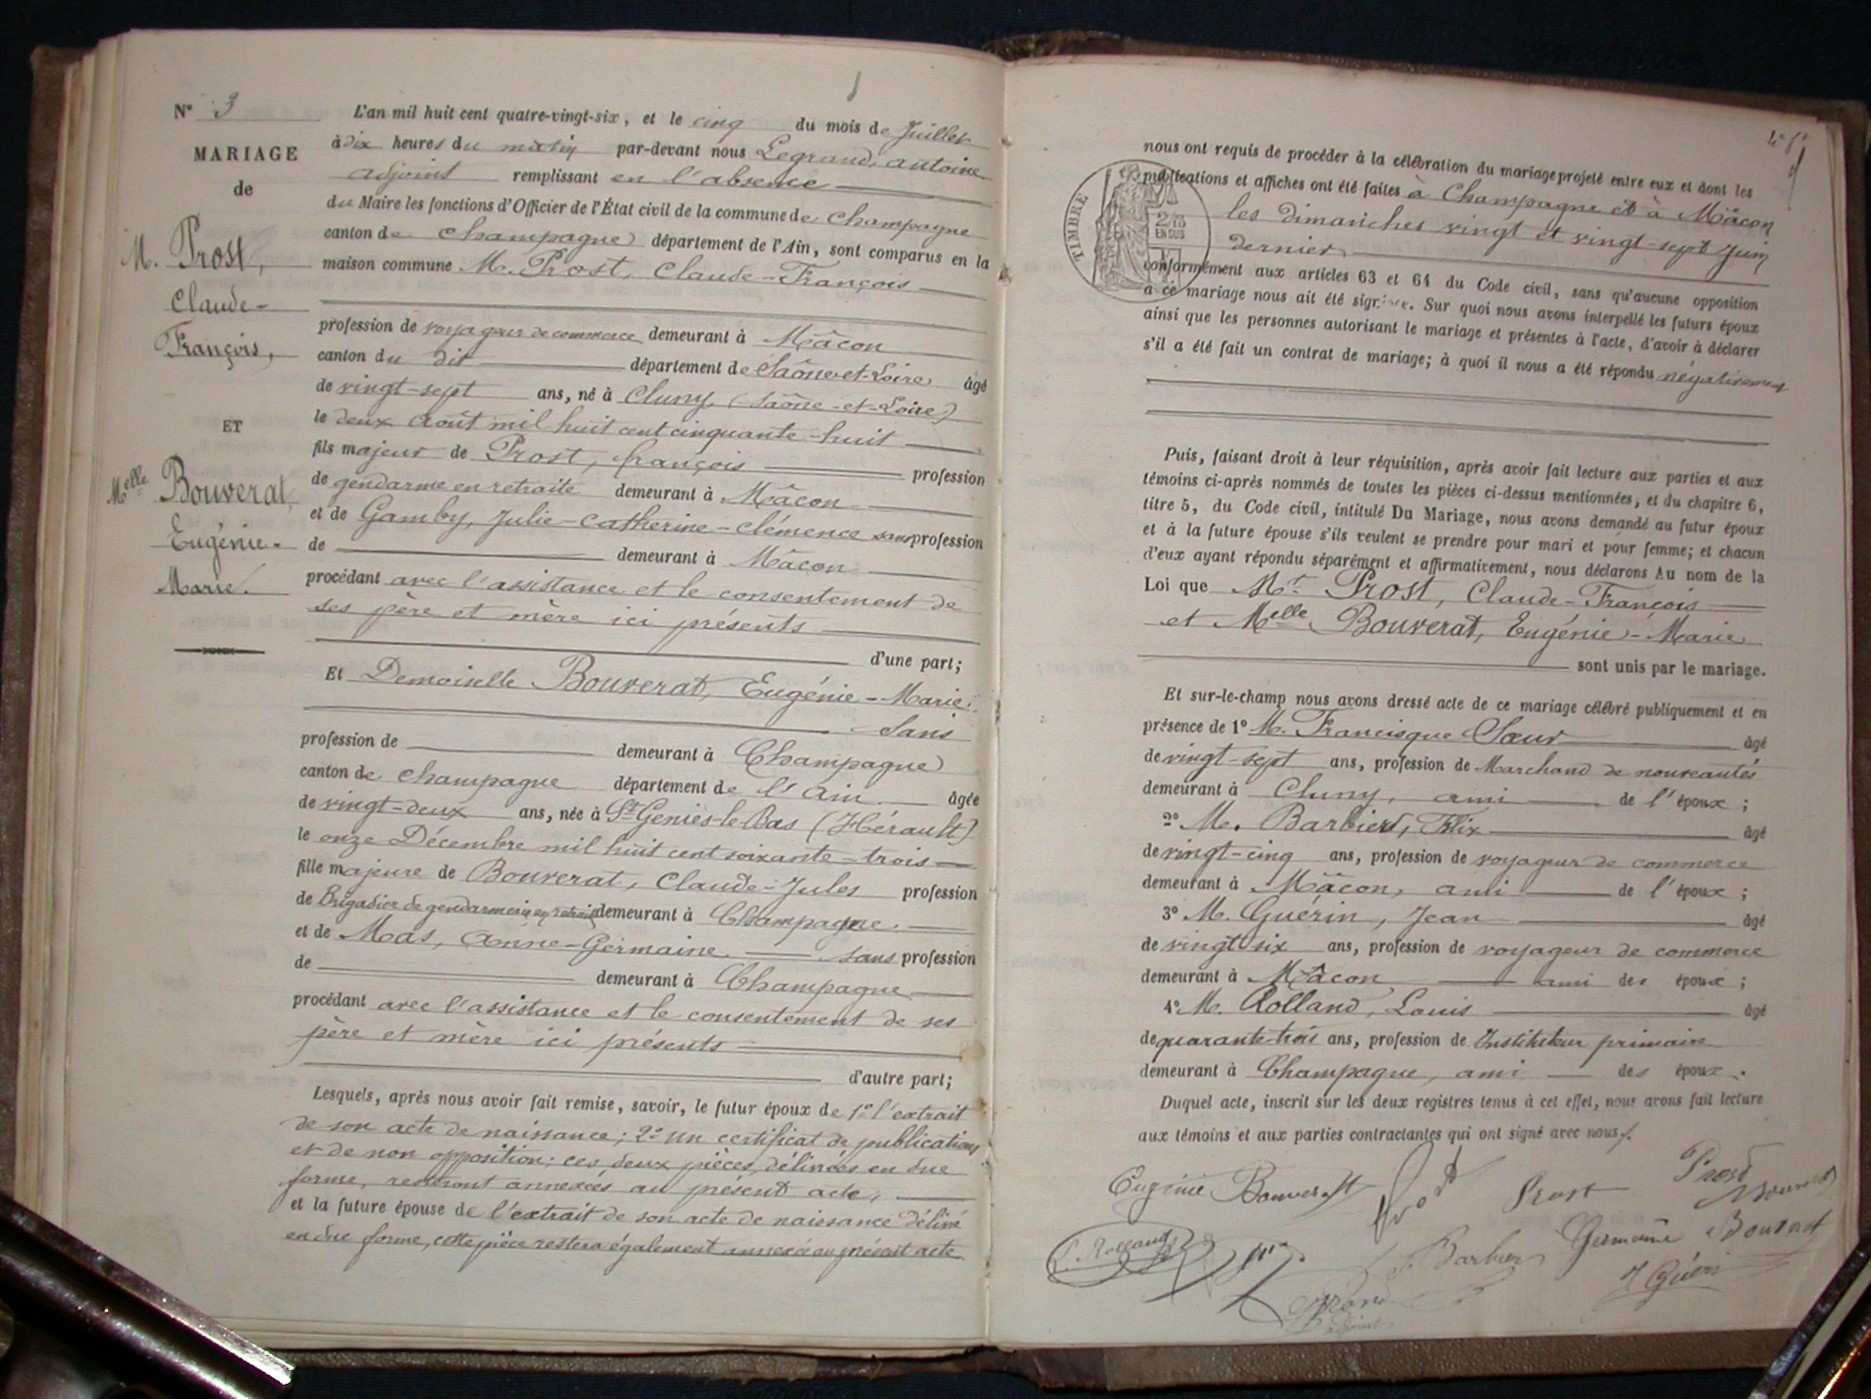 N° 3
MARIAGE
de
M. Prost,
Claude-
François,
ET
Melle Bouverat,
Eugénie-
Marie.
L'an mil huit cent quatre-vingt-six, et le cinq du mois de Juillet
à dix heures du matin par-devant nous Legrand, antoine
adjoint remplissant en l'absence
du Maire les fonctions d'Officier de l'État civil de la commune de Champagne
canton de Champagne département de l'Ain, sont comparus en la
maison commune M. Prost, Claude-François
profession de voyageur de commerce demeurant à Mâcon
canton du dit département de Saône-et-Loire âgé
de vingt-sept ans, né à Cluny, (Saône-et-Loire)
le deux Août mil huit cent cinquante-huit
fils majeur de Prost, françois profession
de gendarme en retraite demeurant à Mâcon
et de Gamby, Julie-Catherine-Clémence sans profession
de demeurant à Mâcon
procédant avec l'assistance et le consentement de
ses père et mère ici présents
d'une part;
Et Demoiselle Bouverat, Eugénie-Marie
Sans
profession de demeurant à Champagne
canton de Champagne département de l'Ain âgée
de vingt-deux ans, née à St Geniès-le-Bas (Hérault)
le onze Décembre mil huit cent soixante-trois
fille majeure de Bouverat, Claude-Jules profession
de Brigadier de gendarmerie en retraite demeurant à Champagne
et de Mas, Anne-Germaine sans profession
de demeurant à Champagne
procédant avec l'assistance et le consentement de ses
père et mère ici présents
d'autre part;
Lesquels, après nous avoir fait remise, savoir, le futur époux de 1° l'extrait
de son acte de naissance; 2° un certificat de publications
et de non opposition; ces deux pièces, délivrées en due
forme, resteront annexées au présent acte,
et la future épouse de l'extrait de son acte de naissance délivré
en due forme, cette pièce restera également annexée au présent acte
nous ont requis de procéder à la célébration du mariage projeté entre eux et dont les
publications et affiches ont été faites à Champagne et à Mâcon
les dimanches vingt et vingt-sept Juin
dernier
TIMBRE
EN SUS
conformément aux articles 63 et 64 du Code civil, sans qu'aucune opposition
à ce mariage nous ait été signifiée. Sur quoi nous avons interpellé les futurs époux
ainsi que les personnes autorisant le mariage et présentes à l'acte, d'avoir à déclarer
s'il a été fait un contrat de mariage; à quoi il nous a été répondu négativement
Puis, faisant droit à leur réquisition, après avoir fait lecture aux parties et aux
témoins ci-après nommés de toutes les pièces ci-dessus mentionnées, et du chapitre 6,
titre 5, du Code civil, intitulé Du Mariage, nous avons demandé au futur époux
et à la future épouse s'ils veulent se prendre pour mari et pour femme; et chacun
d'eux ayant répondu séparément et affirmativement, nous déclarons Au nom de la
Loi que Mr Prost, Claude-François
et Melle Bouverat, Eugénie-Marie
sont unis par le mariage.
Et sur-le-champ nous avons dressé acte de ce mariage célébré publiquement et en
présence de 1° M. Francisque Sœur âgé
de vingt-sept ans, profession de Marchand de nouveautés
demeurant à Cluny, ami de l'époux;
2° M. Barbier, Félix âgé
de vingt-cinq ans, profession de voyageur de commerce
demeurant à Mâcon, ami de l'époux;
3° M. Guérin, Jean âgé
de vingt six ans, profession de voyageur de commerce
demeurant à Mâcon ami des époux;
4° M. Rolland, Louis âgé
de quarante-trois ans, profession de Instituteur primaire
demeurant à Champagne, ami des époux.
Duquel acte, inscrit sur les deux registres tenus à cet effet, nous avons fait lecture
aux témoins et aux parties contractantes qui ont signé avec nous.
Eugénie Bouverat Prost Prost Prost
L. Rolland Barbier Germaine Bouverat
J Guérin